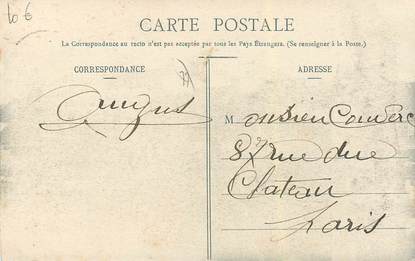 10 €
CARTE POSTALE
La Correspondance au recto n'est pas acceptée par tous les Pays Étrangers. (Se renseigner à la Poste.)
CORRESPONDANCE
ADRESSE
Monsieur Couderc
87 rue du
Chateau
Paris